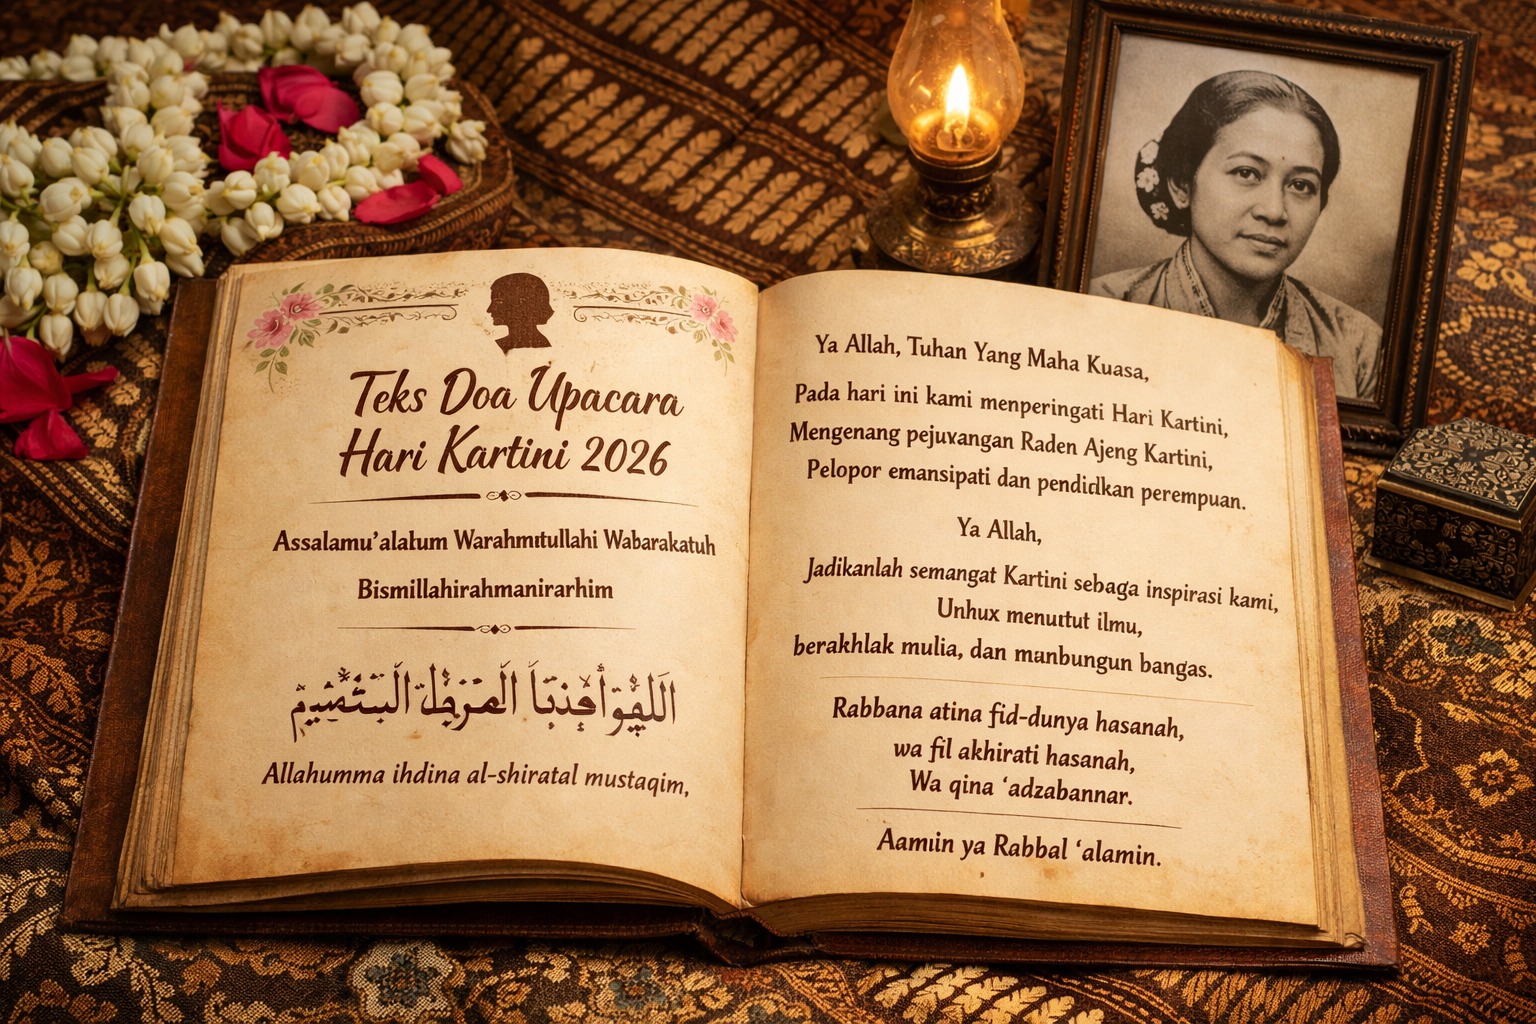 Teks Doa Upacara
Hari Kartini 2026
Assalamu'alatum Warahmtullahi Wabarakatuh
Bismillahirahmanirarhim
Allahumma ihdina al-shiratal mustaqim,
Ya Allah, Tuhan Yang Maha Kuasa,
Pada hari ini kami menperingati Hari Kartini,
Mengenang pejuvangan Raden Ajeng Kartini,
Pelopor emansipati dan pendidkan perempuan.
Ya Allah,
Jadikanlah semangat Kartini sebaga inspirasi kami,
Unhux menuttut ilmu,
berakhlak mulia, dan manbungun bangas.
Rabbana atina fid-dunya hasanah,
wa fil akhirati hasanah,
Wa qina 'adzabannar.
Aamiin ya Rabbal 'alamin.